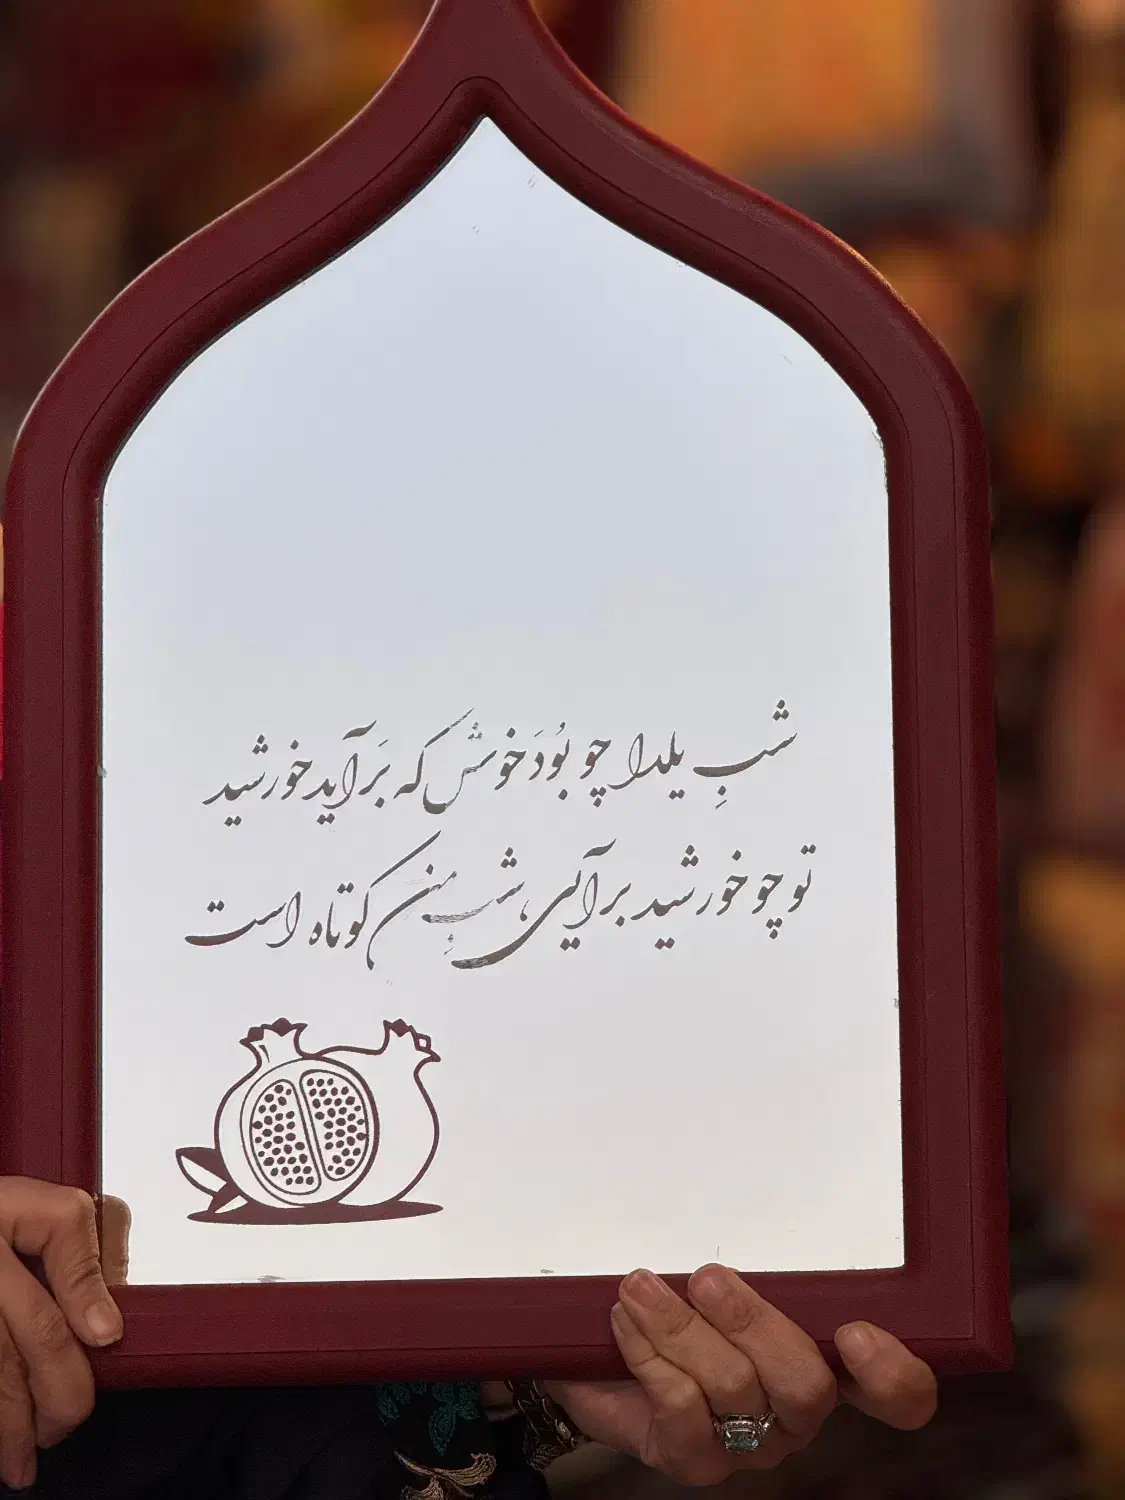 شبِ یلدا چو بُوَد خوش که بَرآید خورشید
تو چو خورشید برآیی، شبِ من کوتاه است